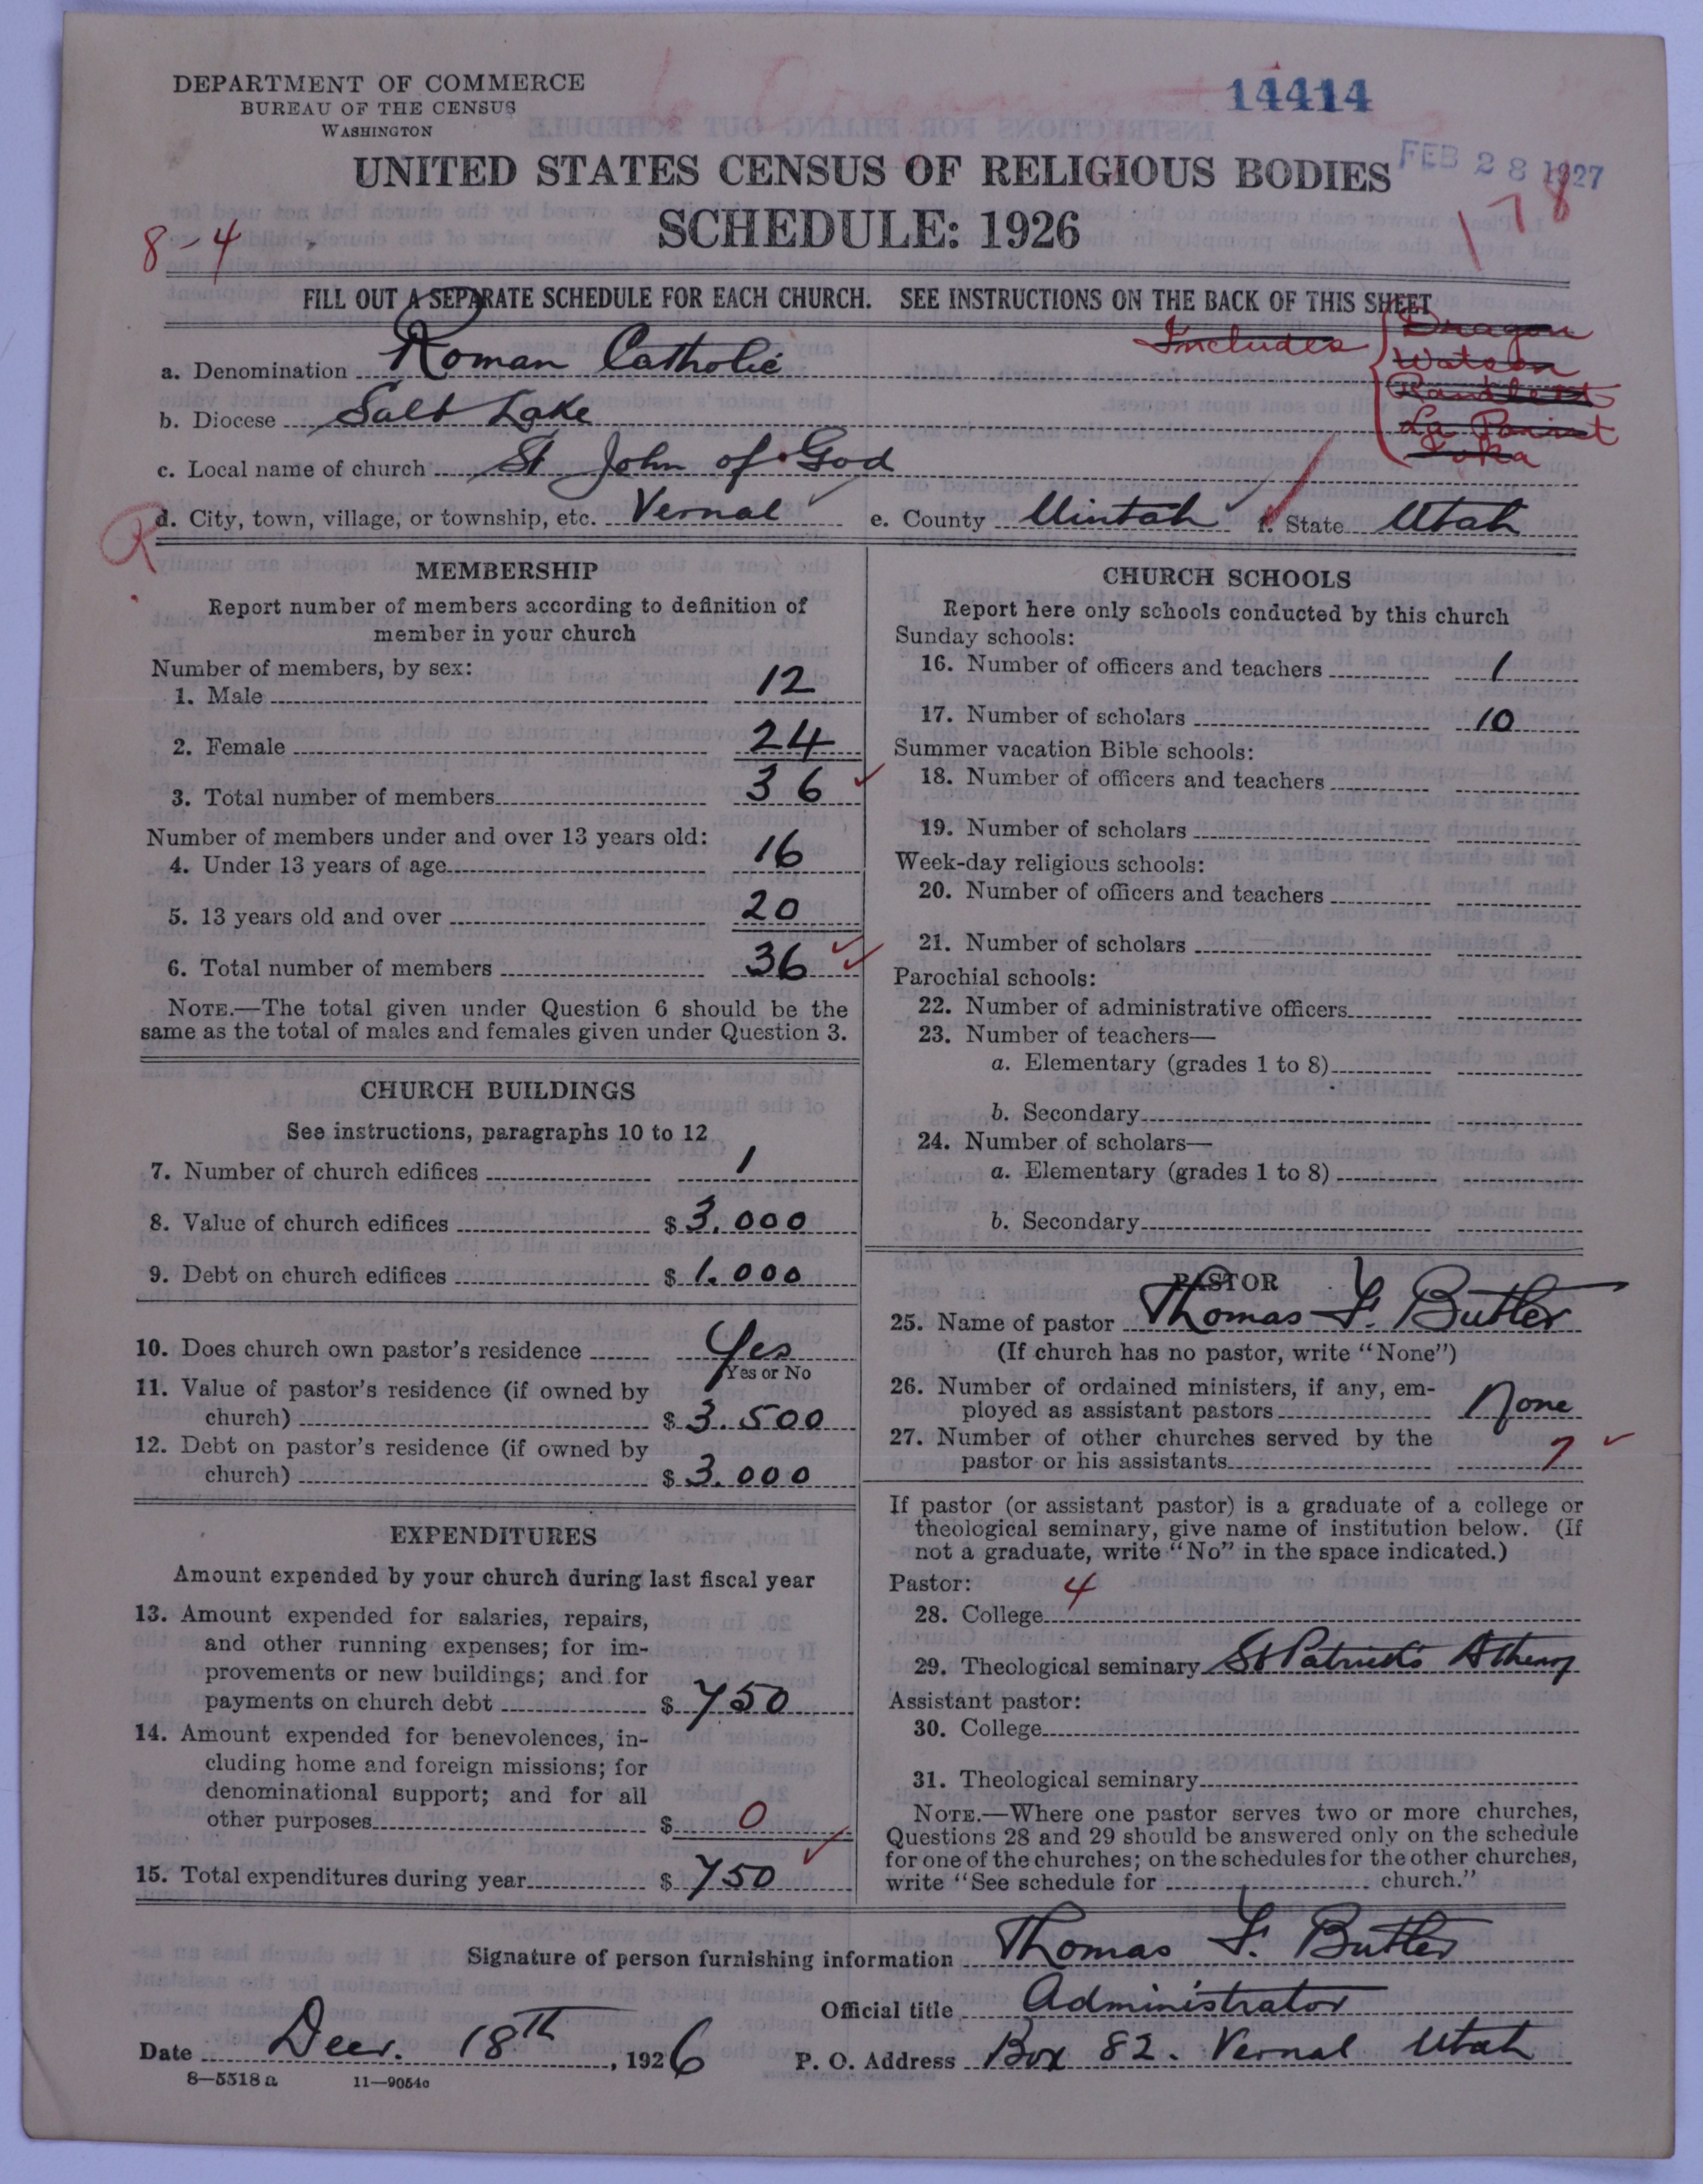 DEPARTMENT OF COMMERCE
BUREAU OF THE CENSUS
WASHINGTON
14414
UNITED STATES CENSUS OF RELIGIOUS BODIES
FEB 28 1927
SCHEDULE: 1926
178
8-4
FILL OUT A SEPARATE SCHEDULE FOR EACH CHURCH. SEE INSTRUCTIONS ON THE BACK OF THIS SHEET
Includes
Dragon
Watson
Randlett
La Point
a. Denomination Roman Catholic
b. Diocese Salt Lake
c. Local name of church St John of God
R
d. City, town, village, or township, etc. Vernal e. County Uintah f. State Utah
MEMBERSHIP
Report number of members according to definition of
member in your church
Number of members, by sex:
1. Male 12
2. Female 24
3. Total number of members 36
Number of members under and over 13 years old:
4. Under 13 years of age 16
5. 13 years old and over 20
6. Total number of members 36
NOTE.—The total given under Question 6 should be the
same as the total of males and females given under Question 3.
CHURCH BUILDINGS
See instructions, paragraphs 10 to 12
7. Number of church edifices 1
8. Value of church edifices $ 3.000
9. Debt on church edifices $ 1.000
10. Does church own pastor's residence Yes
Yes or No
11. Value of pastor's residence (if owned by
church) $ 3.500
12. Debt on pastor's residence (if owned by
church) $ 3.000
EXPENDITURES
Amount expended by your church during last fiscal year
13. Amount expended for salaries, repairs,
and other running expenses; for im-
provements or new buildings; and for
payments on church debt $ 750
14. Amount expended for benevolences, in-
cluding home and foreign missions; for
denominational support; and for all
other purposes $ 0
15. Total expenditures during year $ 750
CHURCH SCHOOLS
Report here only schools conducted by this church
Sunday schools:
16. Number of officers and teachers 1
17. Number of scholars 10
Summer vacation Bible schools:
18. Number of officers and teachers
19. Number of scholars
Week-day religious schools:
20. Number of officers and teachers
21. Number of scholars
Parochial schools:
22. Number of administrative officers
23. Number of teachers—
a. Elementary (grades 1 to 8)
b. Secondary
24. Number of scholars—
a. Elementary (grades 1 to 8)
b. Secondary
PASTOR
25. Name of pastor Thomas F. Butler
(If church has no pastor, write "None")
26. Number of ordained ministers, if any, em-
ployed as assistant pastors None
27. Number of other churches served by the
pastor or his assistants 7
If pastor (or assistant pastor) is a graduate of a college or
theological seminary, give name of institution below. (If
not a graduate, write "No" in the space indicated.)
Pastor: 4
28. College
29. Theological seminary St Patricks
Assistant pastor:
30. College
31. Theological seminary
NOTE.—Where one pastor serves two or more churches,
Questions 28 and 29 should be answered only on the schedule
for one of the churches; on the schedules for the other churches,
write "See schedule for church."
Signature of person furnishing information Thomas F. Butler
Official title Administrator
Date Decr. 18th, 1926 P. O. Address Box 82. Vernal Utah
8—5518 a 11—9054c